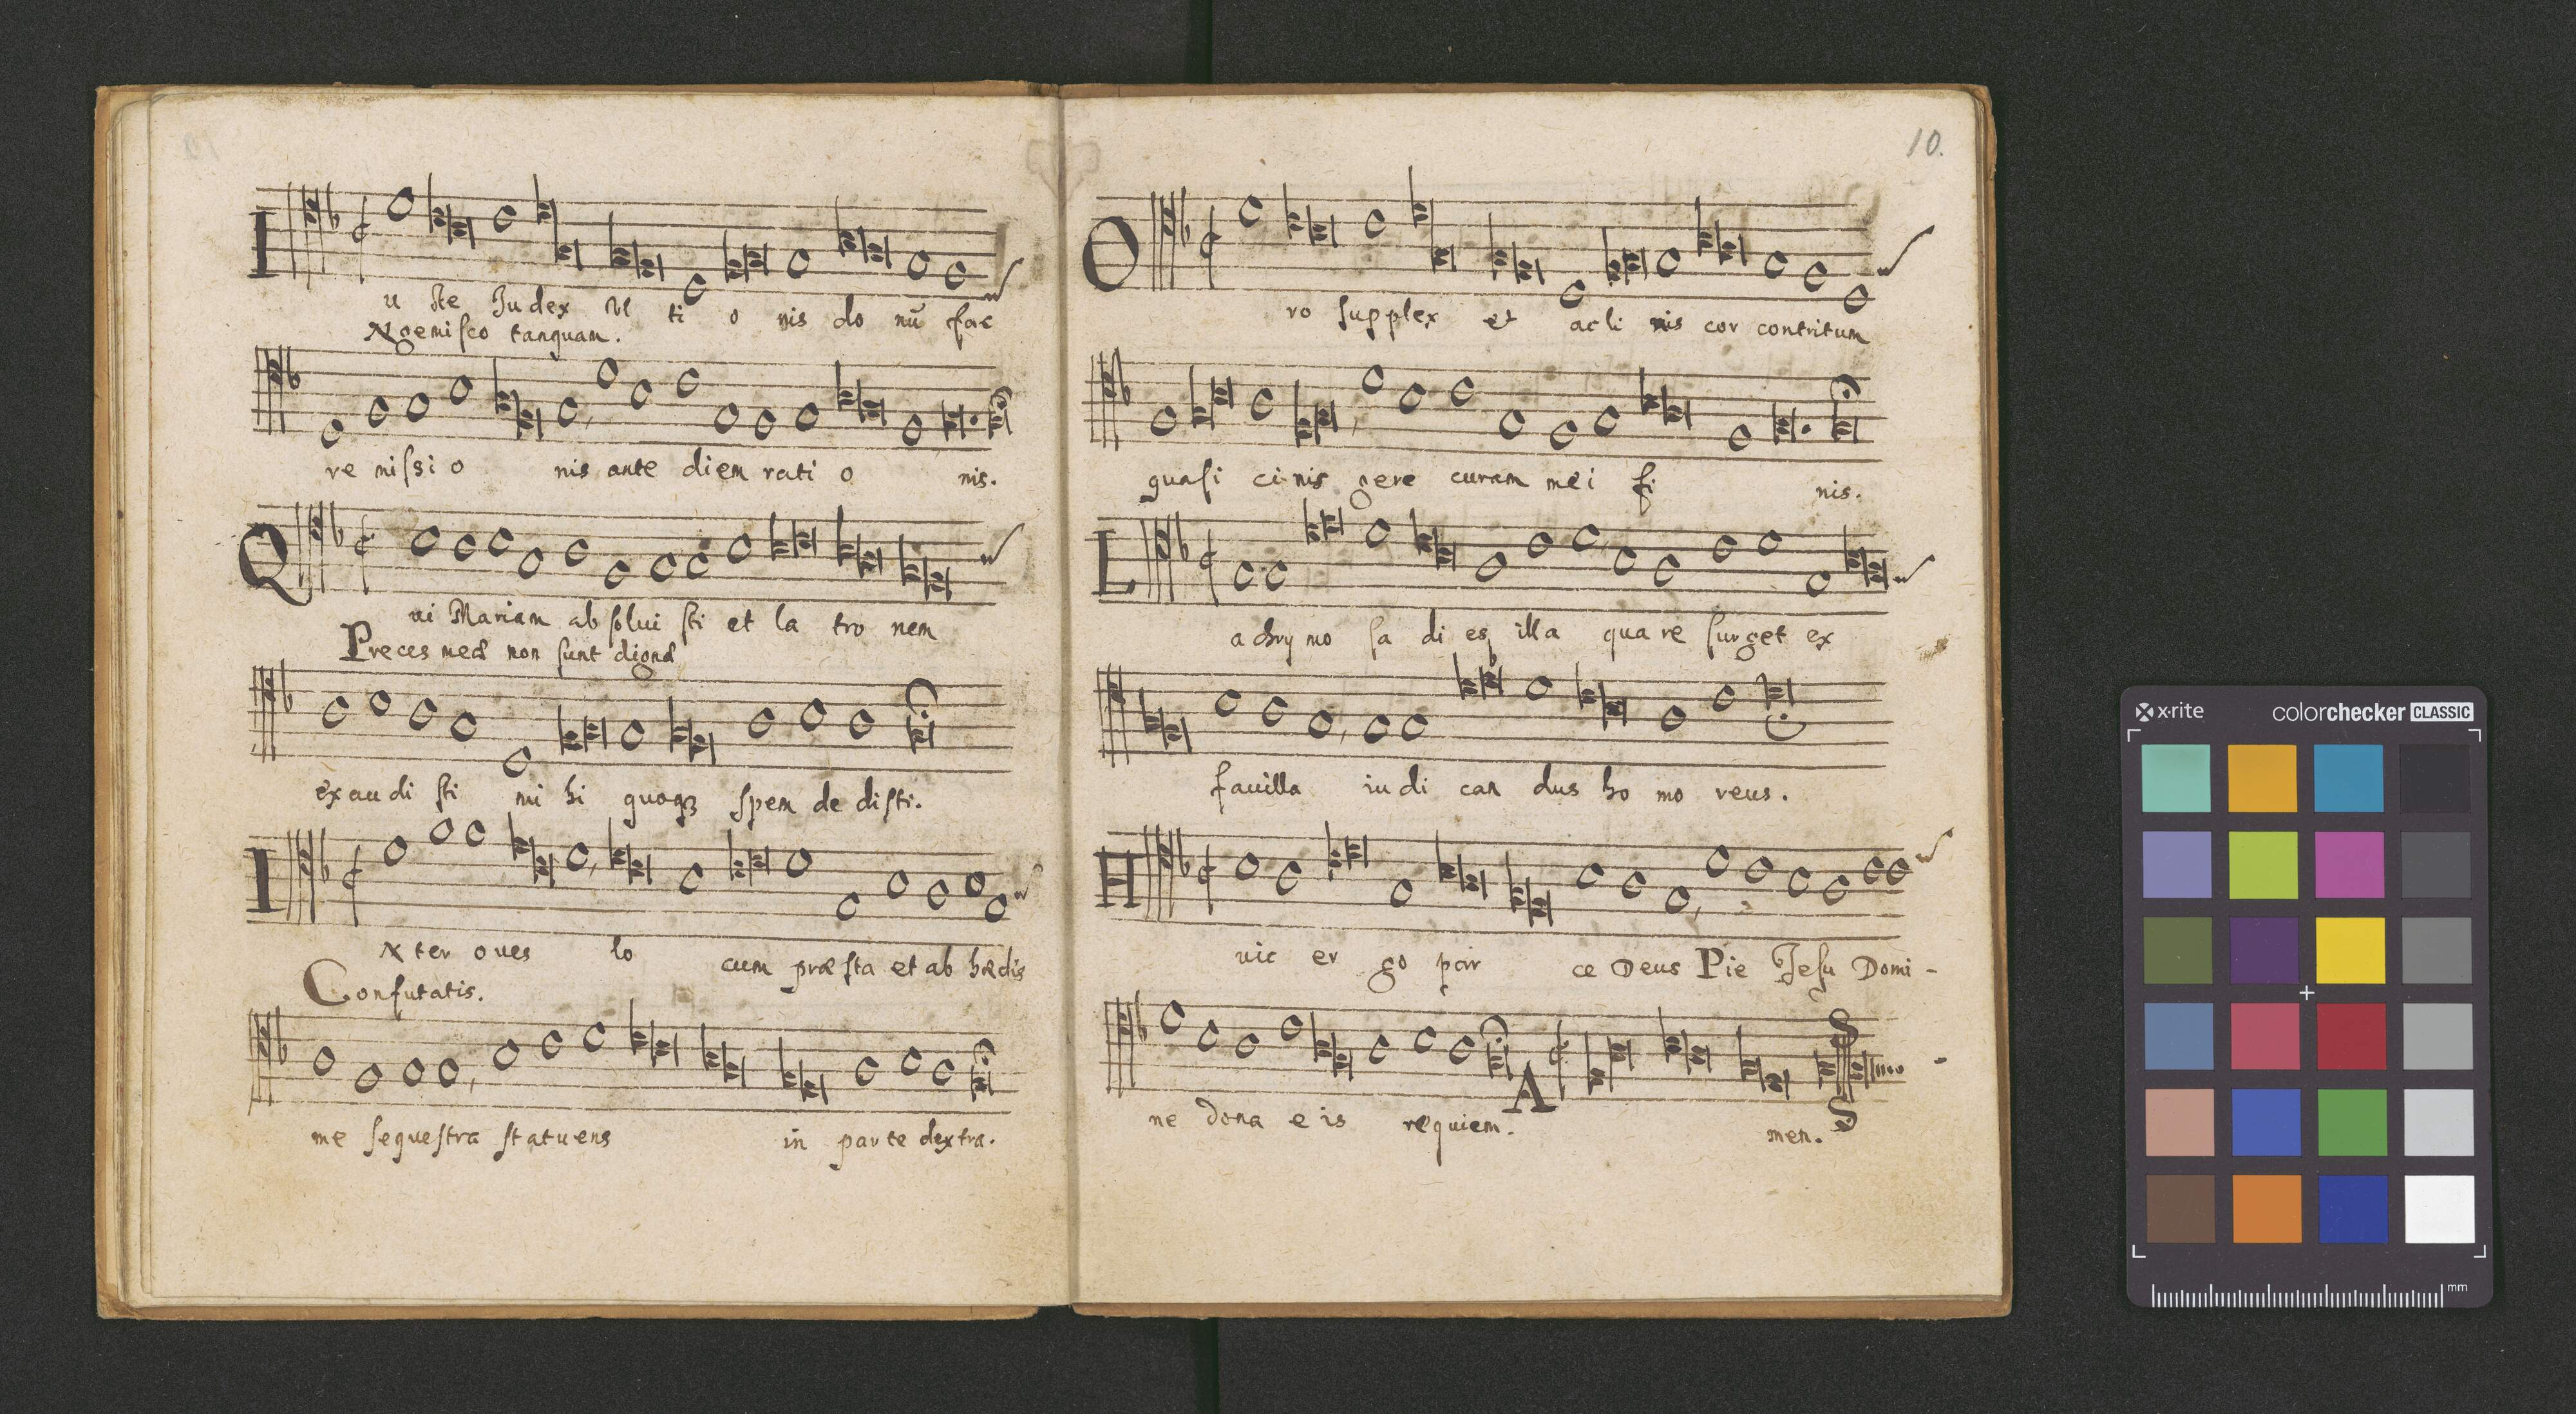 I
u ste Judex Vl ti o nis do nũ fac
Ngemiſco tanquam.
re miſsi o nis ante diem rati o nis.
Q
ui Mariam ab ſolui ſti et la tro nem
Preces meæ non ſunt dignæ
exau di ſti mi hi quoqꝫ ſpem de diſti.
I
N ter oves lo cum præ ſta et ab hædis
Confutatis.
me ſequeſtra ſtatuens in parte dextra.
10.
O
ro ſupplex et acli nis cor contritum
quaſi ci nis gere curam mei fi nis.
L
achry mo ſa di es illa qua re ſurget ex
fauilla iudi can dus ho mo reus.
H
uic er go par ce Deus Pie Jeſu Domi -
ne dona e is requiem. A men.
x·rite colorchecker CLASSIC
mm